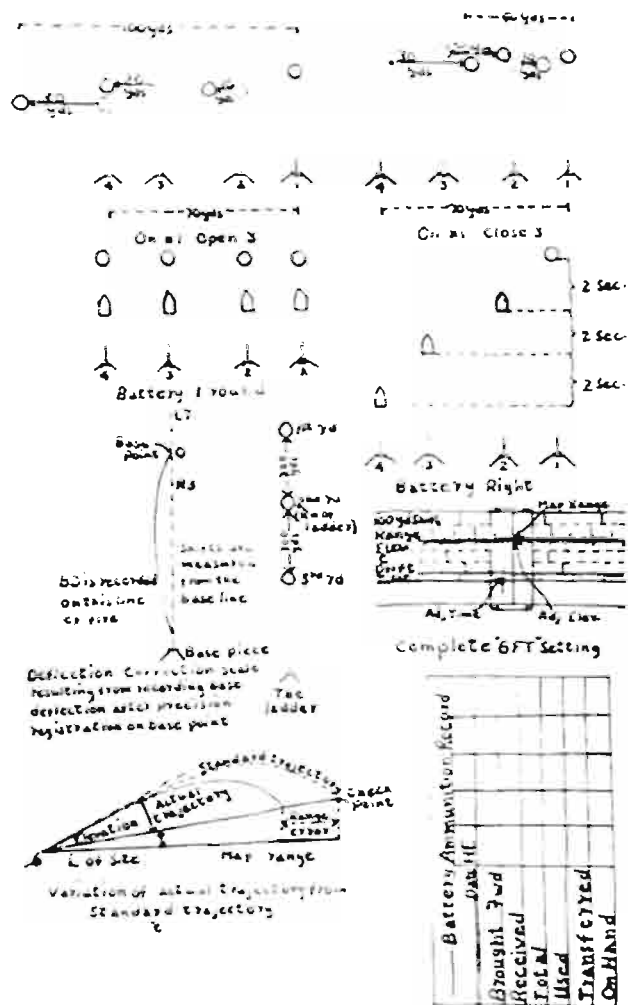 100 yds
60 yds
30
yds
30
yds
4 3 2 1
4 3 2 1
70 yds
70 yds
On #1 Open 3
On #1 Close 3
2 Sec.
2 Sec.
2 Sec.
4 3 2 1
Battery 1 round
4 3 2 1
Battery Right
Base
point
1st rd
3rd rd
BD is recorded
on this line
of fire
Shifts are
measured
from the
base line
Base piece
Deflection Correction scale
resulting from recording base
deflection after precision
registration on base point
The
ladder
Map Range
100 yd
Range
Elev
C
Drift
Adj. Time
Adj. Elev
Complete "GFT" Setting
Standard trajectory
Actual
trajectory
Check
point
Elevation
Range
Error
of Site
Map range
Variation of actual trajectory from
Standard trajectory
Battery Ammunition Record
Date
Brought Fwd
Received
Total
Used
Transferred
On Hand